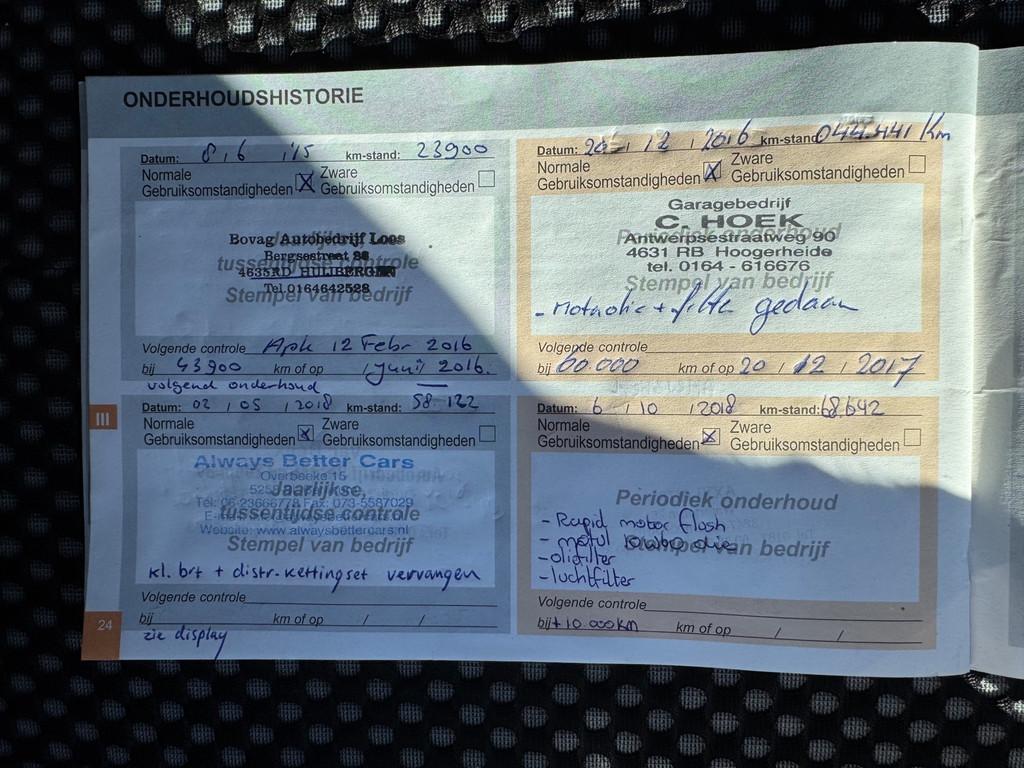 ONDERHOUDSHISTORIE
Datum: 8 / 6 / '15 km-stand: 23900
Normale Zware
Gebruiksomstandigheden X Gebruiksomstandigheden
Jaarlijkse,
tussentijdse controle
Stempel van bedrijf
Bovag Autobedrijf Loos
Bergsestraat
4635RD HUIJBERGEN
Tel.0164642528
Volgende controle Apk 12 Febr 2016
bij 43900 km of op / Juni / 2016.
volgend onderhoud
Datum: 20 / 12 / 2016 km-stand: 044.441 Km
Normale Zware
Gebruiksomstandigheden X Gebruiksomstandigheden
Garagebedrijf
C. HOEK
Periodiek onderhoud
Antwerpsestraatweg 90
4631 RB Hoogerheide
tel. 0164 - 616676
Stempel van bedrijf
- Motorolie + filter gedaan
Volgende controle
bij 60.000 km of op 20 / 12 / 2017
III
Datum: 02 / 05 / 2018 km-stand: 58-122
Normale Zware
Gebruiksomstandigheden X Gebruiksomstandigheden
Always Better Cars
Overbeeke 15
Jaarlijkse,
Tel: 06-23666778 Fax: 073-5567029
tussentijdse controle
Website: www.alwaysbettercars.nl
Stempel van bedrijf
kl. brt + distr.kettingset vervangen
Volgende controle
bij km of op / /
zie display
Datum: 6 / 10 / 2018 km-stand: 68.642
Normale Zware
Gebruiksomstandigheden X Gebruiksomstandigheden
Periodiek onderhoud
- Rapid motor flash
- motul olie
Stempel van bedrijf
- oliefilter
- luchtfilter
Volgende controle
bij + 10.000km km of op / /
24